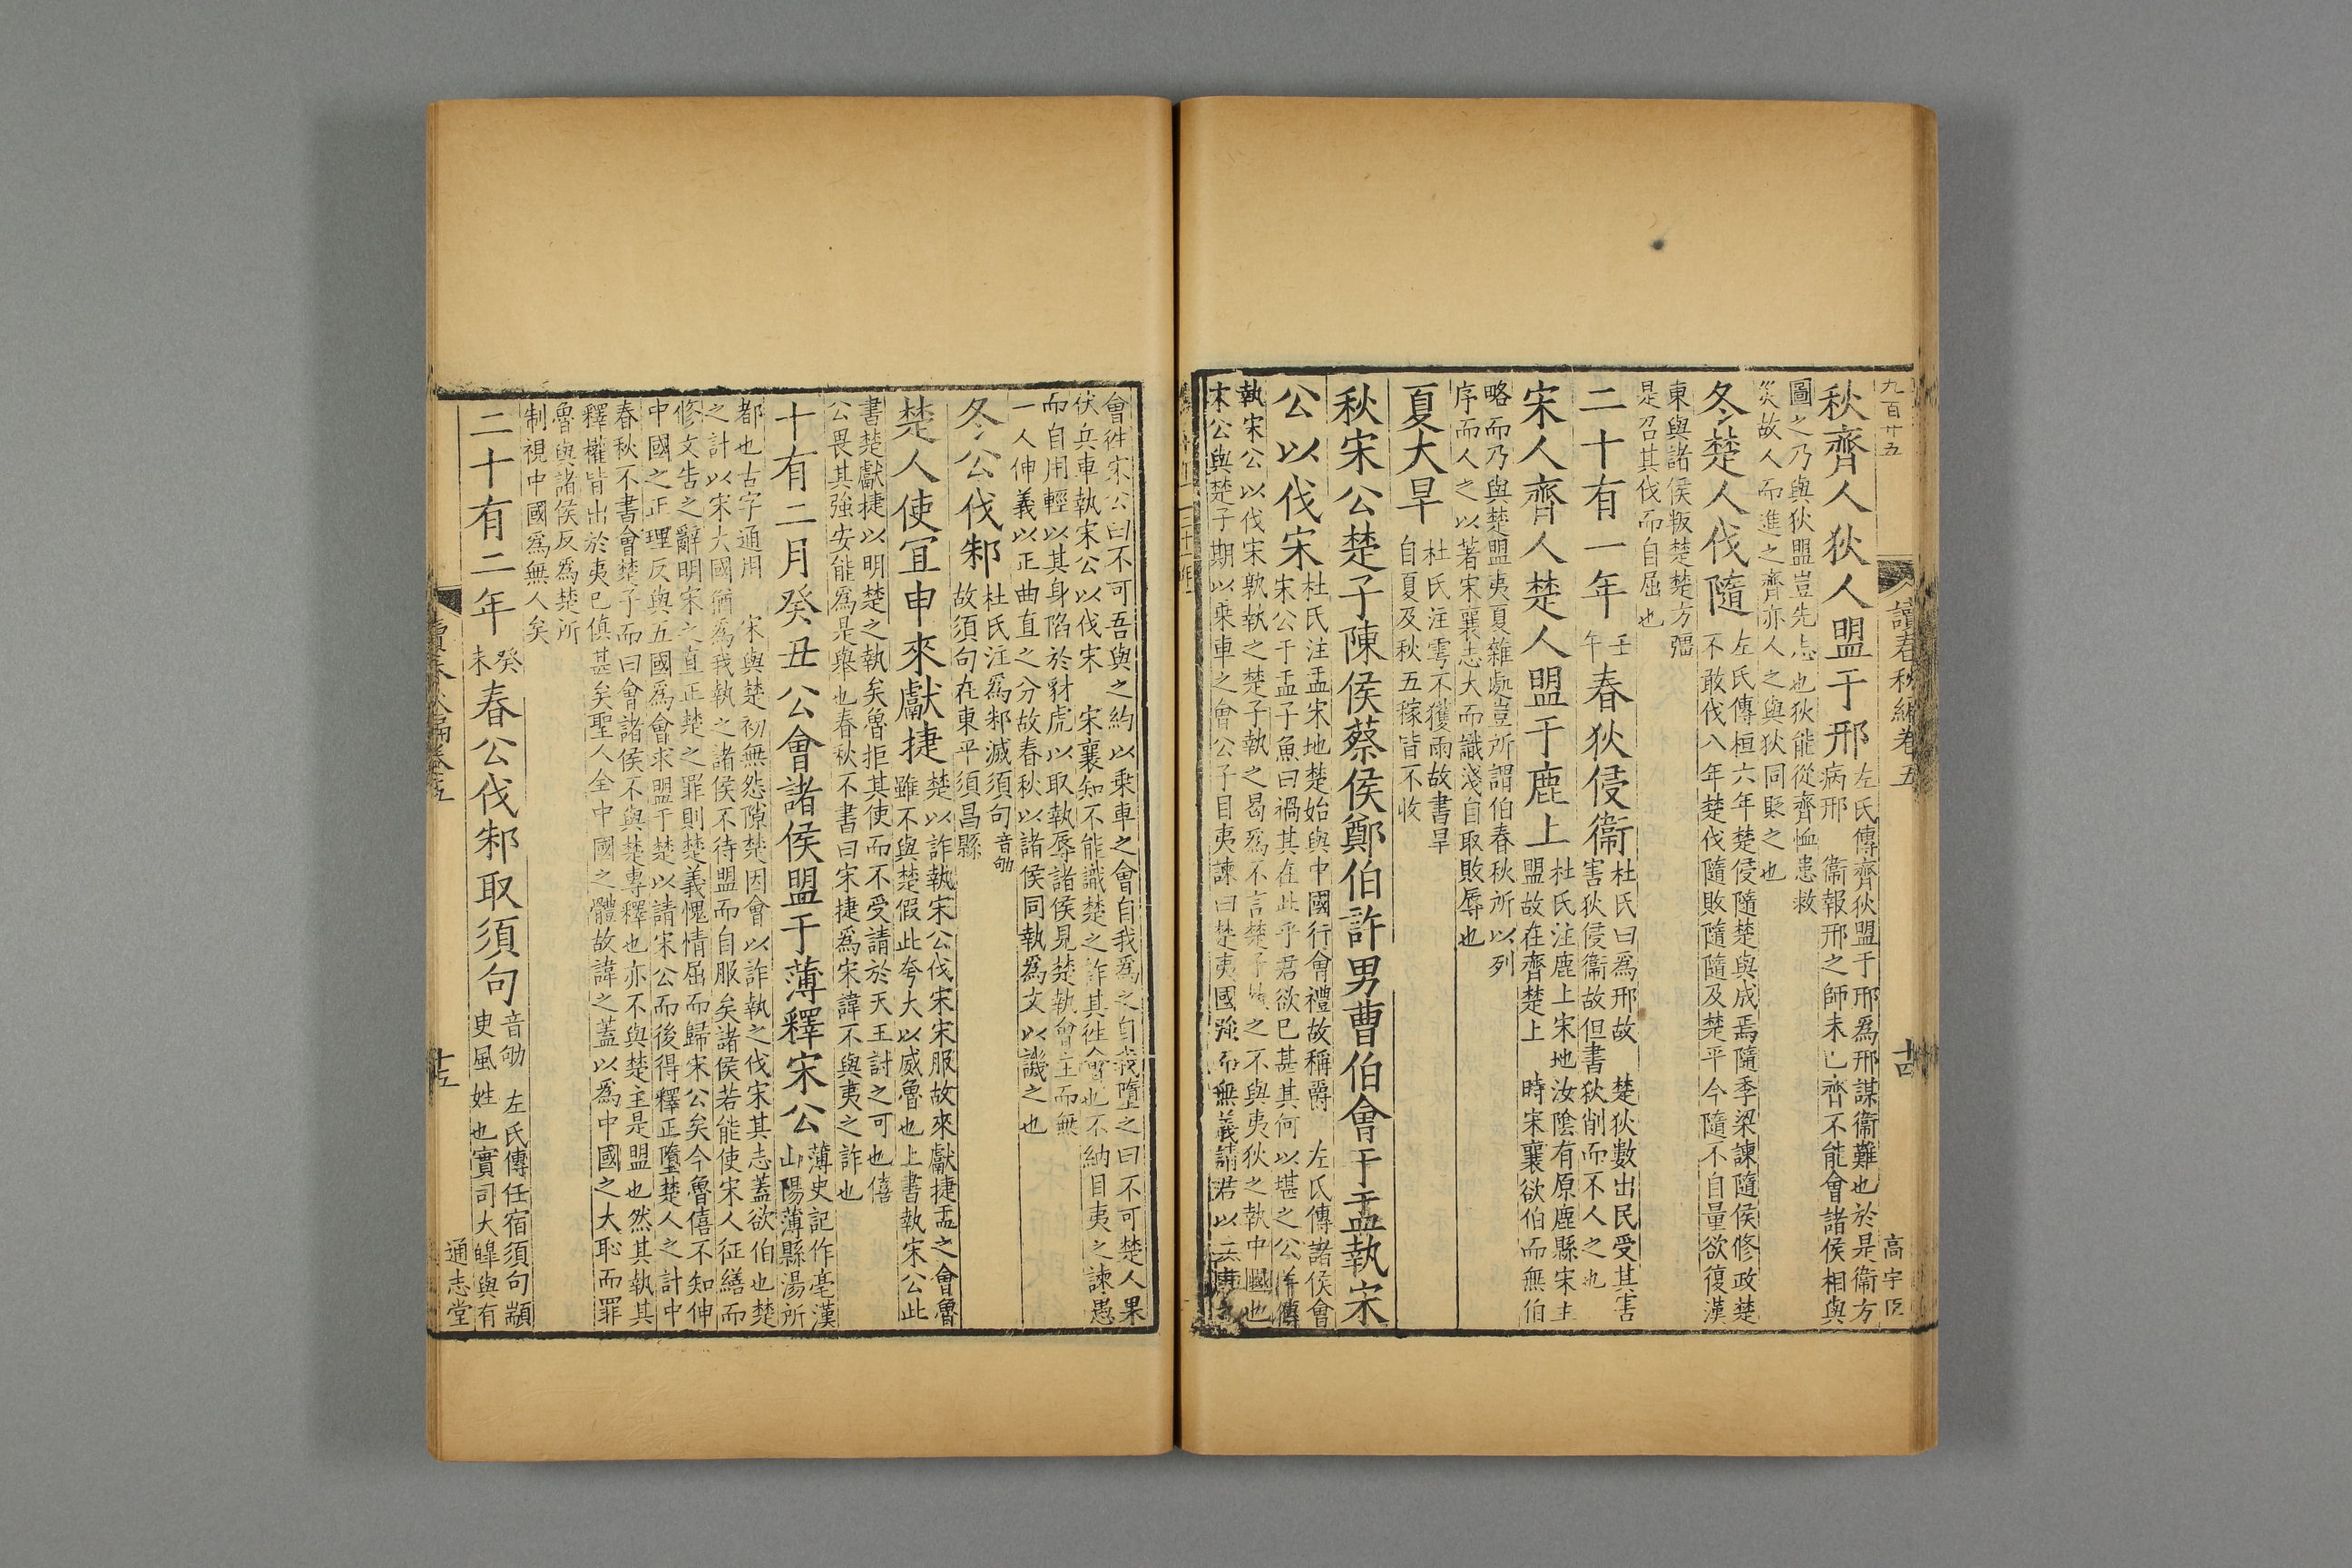 九百廿五
讀春秋編卷五
十四
高宇臣
秋齊人狄人盟于邢
左氏傳齊狄盟于邢爲邢謀衞難也於是衞方
病邢　衞報邢之師未已齊不能會諸侯相與
圖之乃與狄盟豈先志也狄能從齊恤患救
災故人而進之齊亦人之與狄同貶之也
冬楚人伐隨
左氏傳桓六年楚侵隨楚與成焉隨季梁諫隨侯修政楚
不敢伐八年楚伐隨敗隨隨及楚平今隨不自量欲復漢
東與諸侯叛楚楚方彊
是召其伐而自屈也
二十有一年
壬
午
春狄侵衞
杜氏曰爲邢故　楚狄數出民受其害
害狄侵衞故但書狄削而不人之也
宋人齊人楚人盟于鹿上
杜氏注鹿上宋地汝陰有原鹿縣宋主
盟故在齊楚上　時宋襄欲伯而無伯
略而乃與楚盟夷夏雜處豈所謂伯春秋所以列
序而人之以著宋襄志大而識淺自取敗辱也
夏大旱
杜氏注雩不獲雨故書旱
自夏及秋五稼皆不收
秋宋公楚子陳侯蔡侯鄭伯許男曹伯會于盂執宋
公以伐宋
杜氏注盂宋地楚始與中國行會禮故稱爵　左氏傳諸侯會
宋公于盂子魚曰禍其在此乎君欲已甚其何以堪之公羊傳
執宋公以伐宋孰執之楚子執之曷爲不言楚子執之不與夷狄之執中國也
宋公與楚子期以乘車之會公子目夷諫曰楚夷國強而無義請君以兵車之
會往宋公曰不可吾與之約以乘車之會自我爲之自我墮之曰不可楚人果
伏兵車執宋公以伐宋　宋襄知不能識楚之詐其往會也不納目夷之諫愚
而自用輕以其身陷於豺虎以取執辱諸侯見楚執會主而無
一人伸義以正曲直之分故春秋以諸侯同執爲文以譏之也
冬公伐邾
杜氏注爲邾滅須句音劬
故須句在東平須昌縣
楚人使宜申來獻捷
楚以詐執宋公伐宋宋服故來獻捷盂之會魯
雖不與楚假此夸大以威魯也上書執宋公此
書楚獻捷以明楚之執矣魯拒其使而不受請於天王討之可也僖
公畏其強安能爲是舉也春秋不書曰宋捷爲宋諱不與夷之詐也
十有二月癸丑公會諸侯盟于薄釋宋公
薄史記作亳漢
山陽薄縣湯所
都也古字通用　宋與楚初無怨隙楚因會以詐執之伐宋其志蓋欲伯也楚
之計以宋大國猶爲我執之諸侯不待盟而自服矣諸侯若能使宋人征繕而
修文告之辭明宋之直正楚之罪則楚義愧情屈而歸宋公矣今魯僖不知伸
中國之正理反與五國爲會求盟于楚以請宋公而後得釋正墮楚人之計中
春秋不書會楚子而曰會諸侯不與楚專釋也亦不與楚主是盟也然其執其
釋權皆出於夷已傎甚矣聖人全中國之體故諱之蓋以爲中國之大恥而罪
魯與諸侯反為楚所
制視中國爲無人矣
二十有二年
癸
未
春公伐邾取須句
音劬　左氏傳任宿須句顓
臾風姓也實司大皥與有
讀春秋編卷五
十五
通志堂